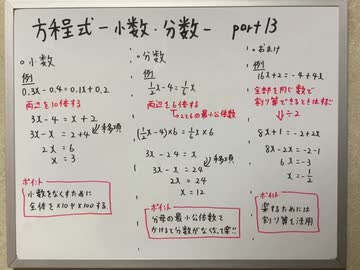 方程式 - 小数・分数 -  part 13
○小数
例
0.3x-0.4=0.1x+0.2
両辺を10倍する
3x-4=x+2
3x-x=2+4 移項
2x=6
x=3
ポイント
小数をなくすために
全体を×10や×100する。
○分数
例
1/2x-4=1/6x
両辺を6倍する
2と6の最小公倍数
(1/2x-4)×6=1/6x×6
3x-24=x
3x-x=24 移項
2x=24
x=12
ポイント
分母の最小公倍数で
かけると分数がなくなって楽!!
○おまけ
例
16x+2=-4+4x
全部を同じ数で
割り算できるときはする!!
÷2
8x+1=-2+2x
8x-2x=-2-1
6x=-3
x=-1/2
ポイント
楽するためには
割り算を活用